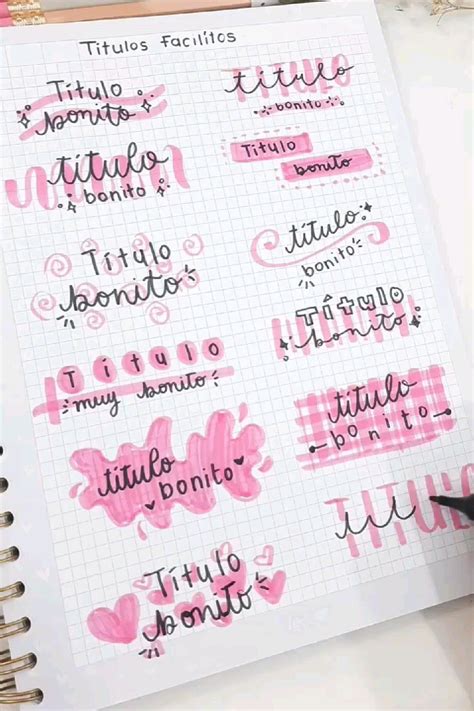 Titulos Facilitos
Título
bonito
título
bonito
título
bonito
Título
bonito
Título
bonito
título
bonito
Título
muy bonito
Título
bonito
título
bonito
título
bonito
Título
bonito
TITULO